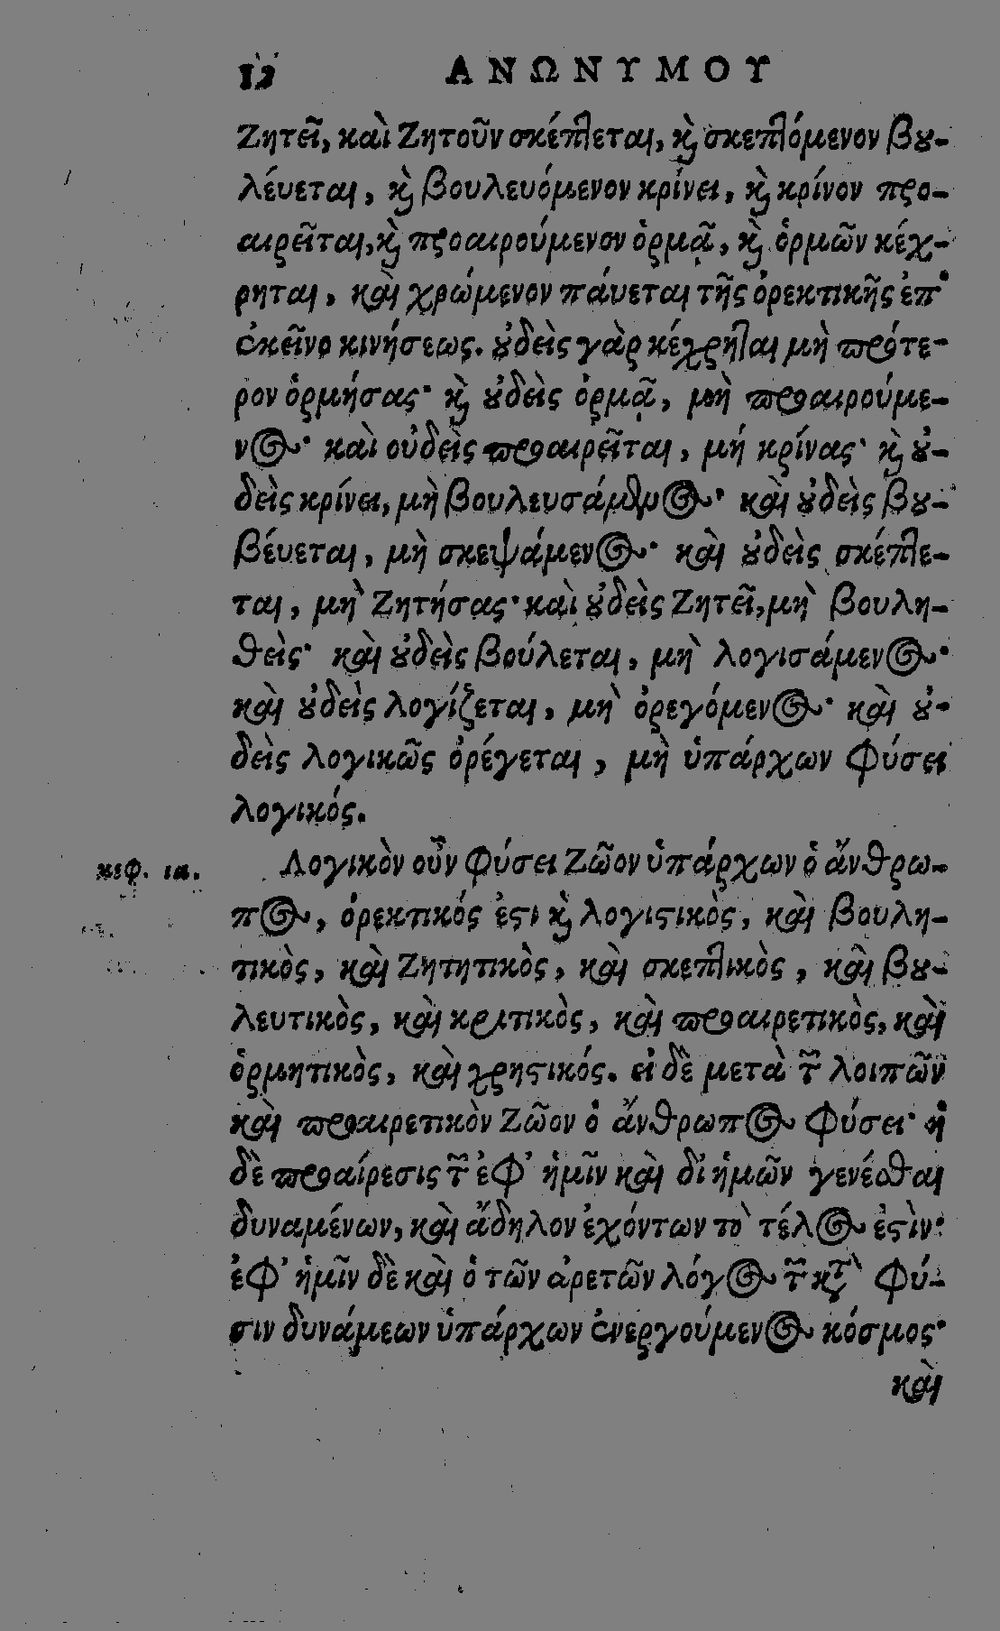 12 ΑΝΩΝΥΜΟΥ
ζητεῖ, καὶ ζητοῦν σκέπτεται, καὶ σκεπτόμενον βου-
λέυεται, καὶ βουλευόμενον κρίνει, καὶ κρίνον προ-
αιρεῖται, καὶ προαιρούμενον ὁρμᾷ, καὶ ὁρμῶν κέχ-
ρηται, καὶ χρώμενον πάυεται τῆς ὀρεκτικῆς ἐπ'
ἐκεῖνο κινήσεως. οὐδεὶς γὰρ κέχρηται μὴ πρότε-
ρον ὁρμήσας· καὶ οὐδεὶς ὁρμᾷ, μὴ προαιρούμε-
νος· καὶ οὐδεὶς προαιρεῖται, μή κρίνας· καὶ οὐ-
δεὶς κρίνει, μὴ βουλευσάμενος· καὶ οὐδεὶς βου-
βέυεται, μὴ σκεψάμενος· καὶ οὐδεὶς σκέπτε-
ται, μὴ ζητήσας· καὶ οὐδεὶς ζητεῖ, μὴ βουλη-
θείς· καὶ οὐδεὶς βούλεται, μὴ λογισάμενος·
καὶ οὐδεὶς λογίζεται, μὴ ὀρεγόμενος· καὶ οὐ-
δεὶς λογικῶς ὀρέγεται, μὴ ὑπάρχων φύσει
λογικός.
κεφ. ια. Λογικὸν οὖν φύσει ζῶον ὑπάρχων ὁ ἄνθρω-
πος, ὀρεκτικός ἐστι καὶ λογιστικὸς, καὶ βουλη-
τικὸς, καὶ ζητητικὸς, καὶ σκεπτικὸς, καὶ βου-
λευτικὸς, καὶ κριτικὸς, καὶ προαιρετικὸς, καὶ
ὁρμητικὸς, καὶ χρηστικός. εἰ δὲ μετὰ τῶν λοιπῶν
καὶ προαιρετικὸν ζῶον ὁ ἄνθρωπος φύσει· ἡ
δὲ προαίρεσις τῶν ἐφ' ἡμῖν καὶ δι' ἡμῶν γενέσθαι
δυναμένων, καὶ ἄδηλον ἐχόντων τὸ τέλος ἐστὶν·
ἐφ' ἡμῖν δὲ καὶ ὁ τῶν ἀρετῶν λόγος τῶν κατὰ φύ-
σιν δυνάμεων ὑπάρχων ἐνεργούμενος κόσμος·
καὶ